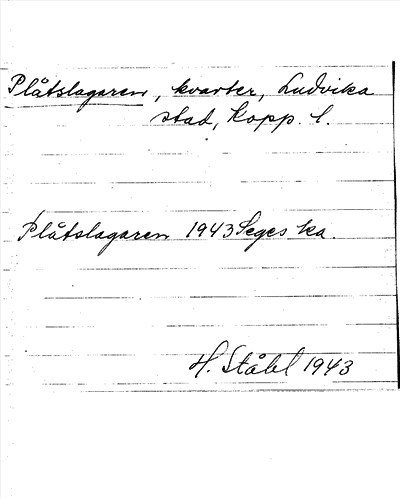 Plåtslagaren, kvarter, Ludvika
stad, Kopp. l.
Plåtslagaren 1943 Seges ka.
H. Ståhl 1943